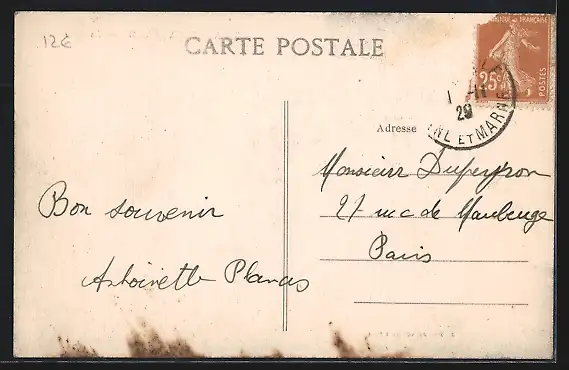 12€
CARTE POSTALE
FRANÇAISE
25c
POSTES
1 -11
29
ET MARNE
Adresse
Monsieur Dupeyron
27 rue de Maubeuge
Paris
Bon souvenir
Antoinette Planas